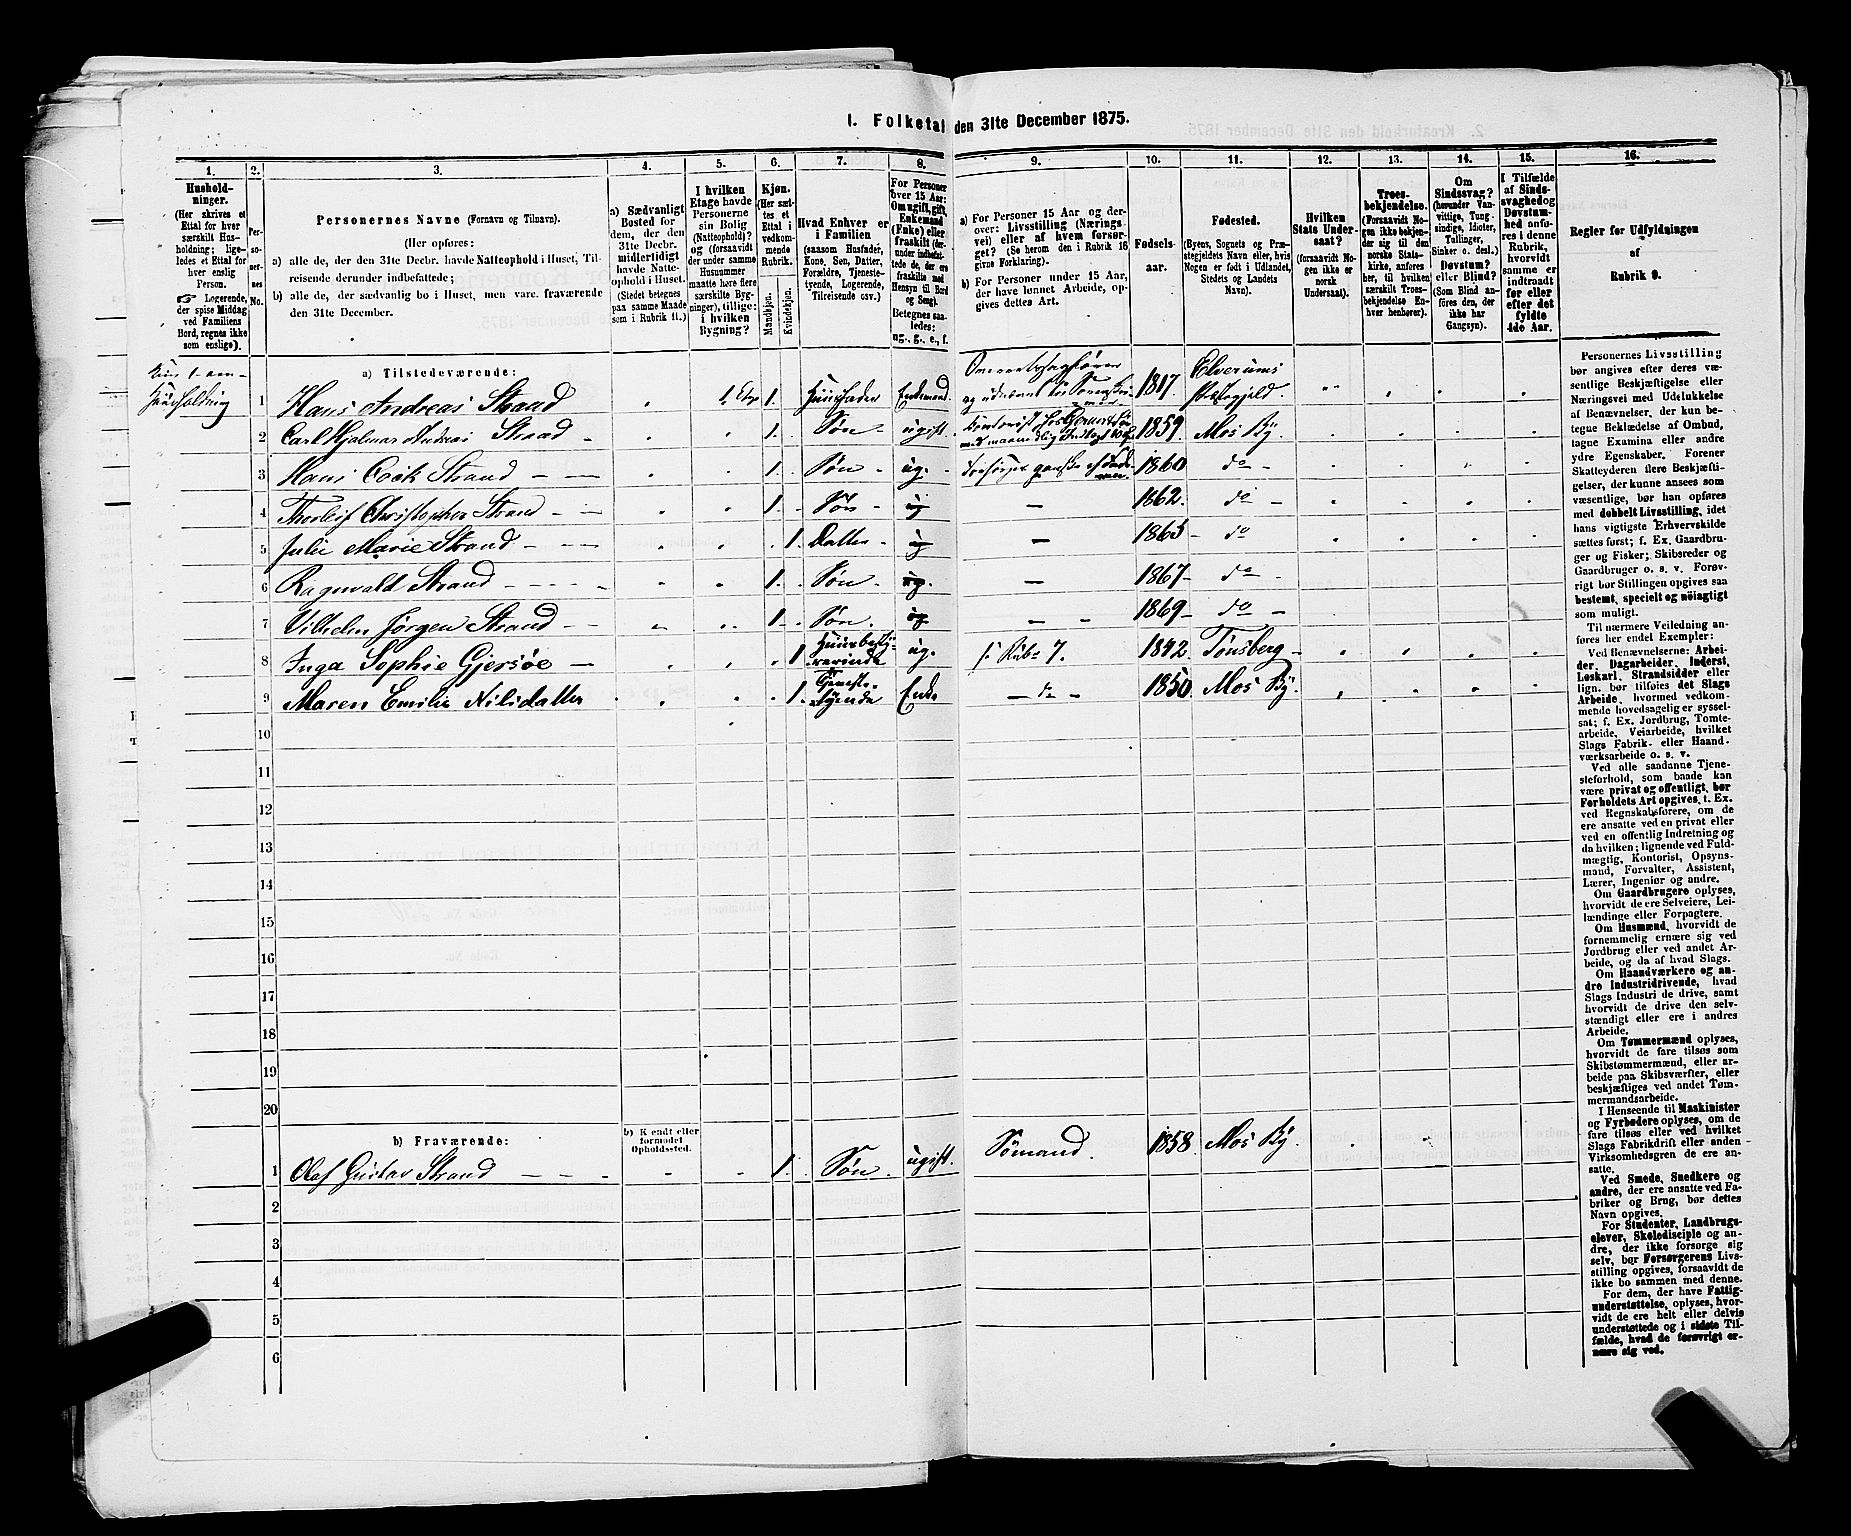 1. Folketal den 31te December 1875.
1.
Hushold-
ninger.
(Her skrives et
Ettal for hver
særskilt Hus-
holdning; lige-
ledes et Ettal for
hver enslig
Person.
☞ Logerende,
der spise Middag
ved Familiens
Bord, regnes ikke
som enslige).
2.
Per-
so-
ner-
nes
No.
3.
Personernes Navne (Fornavn og Tilnavn).
(Her opføres:
a) alle de, der den 31te Decbr. havde Natteophold i Huset, Til-
reisende derunder indbefattede;
b) alle de, der sædvanlig bo i Huset, men vare fraværende
den 31te December.
4.
a) Sædvanligt
Bosted for
dem, der den
31te Decbr.
midlertidigt
havde Natte-
ophold i Huset.
(Stedet betegnes
paa samme Maade
som i Rubrik 11.)
5.
I hvilken
Etage havde
Personerne
sin Bolig
(Natteophold)?
og (forsaavidt
der under samme
Husnummer
maatte høre flere
særskilte Byg-
ninger), tillige:
i hvilken
Bygning?
6.
Kjøn.
(Her sæt-
tes et
Ettal i
vedkom-
mende
Rubrik.
Mandkjøn.
Kvindekjøn.
7.
Hvad Enhver er
i Familien
(saasom Husfader,
Kone, Søn, Datter,
Forældre, Tjeneste-
tyende, Logerende,
Tilreisende osv.)
8.
For Personer
over 15 Aar:
Om ugift, gift,
Enkemand
(Enke) eller
fraskilt (der-
under indbefat-
tede de, der ere
fraskilte med
Hensyn til Bord
og Seng).
Betegnes saa-
ledes:
ug., g., e., f.
9.
a) For Personer 15 Aar og der-
over: Livsstilling (Nærings-
vei) eller af hvem forsør-
get? (Se herom den i Rubrik 16
givne Forklaring).
b) For Personer under 15 Aar,
der have lønnet Arbeide, op-
gives dettes Art.
10.
Fødsels-
aar.
11.
Fødested.
(Byens, Sognets og Præ-
stegjeldets Navn eller, hvis
Nogen er født i Udlandet,
Stedets og Landets
Navn).
12.
Hvilken
Stats Under-
saat?
(forsaavidt No-
gen ikke er
norsk
Undersaat).
13.
Troes-
bekjendelse.
(Forsaavidt No-
gen ikke bekjen-
der sig til den
norske Stats-
kirke, anføres
her, til hvilken
særskilt Troes-
bekjendelse En-
hver henhører).
14.
Om
Sindssvag?
(herunder Van-
vittige, Tung-
sindige, Idioter,
Tullinger,
Sinker o. desl.)
Døvstum?
eller Blind? (Som Blind an-
føres den, der
ikke har
Gangsyn).
15.
I Tilfælde
af Sinds-
svaghed og
Døvstum-
hed anfø-
res i denne
Rubrik,
hvorvidt
samme er
indtraadt
før eller
efter det
fyldte
4de Aar.
16.
Regler for Udfyldningen
af
Rubrik 9.
a) Tilstedeværende:
Huusholdning
1 Hans Andreas Strand 1. Etg 1. Huusfader Enkemand. 1817. Elverums
Præstegjeld
2 Carl Hjalmar Andreas Strand 1. Søn ugift. 1859. Mos By
3 Hans Cock Strand 1. Søn ug. 1860 do
4 Thorleif Christopher Strand 1. Søn ug 1862. do
5 Julie Marie Strand 1. Datter ug 1865 do
6 Ragnvald Strand 1. Søn. ug. 1867 do
7 Vilhelm Jørgen Strand 1. Søn. ug 1869 do
8 Inga Sophie Gjersøe 1. Huusbesty-
rerinde ug. 7. 1842. Tønsberg
9 Maren Emilie Nilsdatter 1. Tjeneste-
tyende Enke do 1850. Mos By.
10
11
12
13
14
15
16
17
18
19
20
b) Fraværende:
b) Kjendt eller
formodet
Opholdssted.
1 Olaf Gustav Strand 1. Søn. ugift. Sømand. 1858. Mos By.
2
3
4
5
6
Personernes Livsstilling
bør angives efter deres væ-
sentlige Beskjæftigelse eller
Næringsvei med Udelukkelse
af Benævnelser, der kun be-
tegne Beklædelse af Ombud,
tagne Examina eller andre
ydre Egenskaber. Forener
Skatteyderen flere Beskjæfti-
gelser, der kunne ansees som
væsentlige, bør han opføres
med dobbelt Livsstilling, idet
hans vigtigste Erhvervskilde
sættes først; f. Ex. Gaardbru-
ger og Fisker; Skibsreder og
Gaardbruger o. s. v. Forøv-
rigt bør Stillingen opgives saa
bestemt, specielt og nöiagtigt
som muligt.
Til nærmere Veiledning an-
føres her endel Exempler:
Ved Benævnelserne: Arbei-
der, Dagarbeider, Inderst,
Løskarl, Strandsidder eller
lign. bør tilføies det Slags
Arbeide, hvormed vedkom-
mende hovedsagelig er syssel-
sat; f. Ex. Jordbrug, Tomte-
arbeide, Veiarbeide, hvilket
Slags Fabrik- eller Haand-
værksarbeide o. s. v.
Ved alle saadanne Tjene-
steforhold, som baade kan
være privat og offentligt, bør
Forholdets Art opgives, f. Ex.
ved Regnskabsførere, om de
ere ansatte ved en privat eller
ved en offentlig Indretning og
da hvilken; lignende ved Fuld-
mægtig, Kontorist, Opsyns-
mand, Forvalter, Assistent,
Lærer, Ingeniør og andre.
Om Gaardbrugere oplyses,
hvorvidt de ere Selveiere, Lei-
lændinge eller Forpagtere.
Om Husmænd, hvorvidt de
fornemmelig ernære sig ved
Jordbrug eller ved andet Ar-
beide, og da af hvad Slags.
Om Haandværkere og an-
dre Industridrivende, hvad
Slags Industri de drive, samt
hvorvidt de drive den selv-
stændigt eller ere i andres
Arbeide.
Om Tømmermænd oplyses,
hvorvidt de fare tilsøs som
Skibstømmermænd, eller ar-
beide paa Skibsværfter, eller
beskjæftiges ved andet Tøm-
mermandsarbeide.
I Henseende til Maskinister
og Fyrbødere oplyses, om de
fare tilsøs eller ved hvilket
Slags Fabrikdrift eller anden
Virksomhedsgren de ere an-
satte.
Ved Smede, Snedkere og
andre, der ere ansatte ved Fa-
briker og Brug, bør dettes
Navn opgives.
For Studenter, Landbrugs-
elever, Skoledisciple og an-
dre, der ikke forsørge sig
selv, bør Forsørgerens Livs-
stilling opgives, forsaavidt de
ikke bo sammen med denne.
For dem, der have Fattig-
understøttelse, oplyses, hvor-
vidt de ere helt eller delvis
understøttede og i sidste Til-
fælde, hvad de forøvrigt er-
nære sig ved.